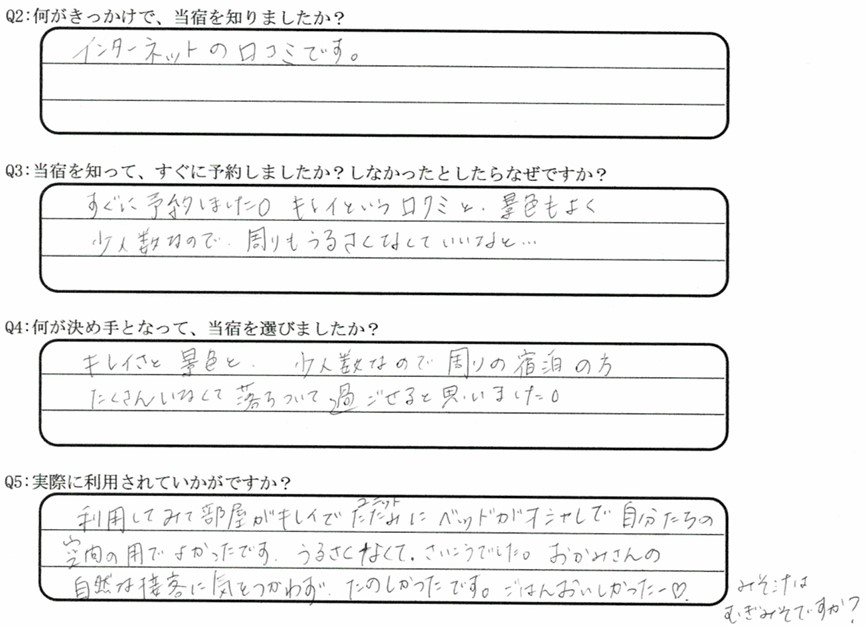 Q2:何がきっかけで、当宿を知りましたか？
インターネットの口コミです。
Q3:当宿を知って、すぐに予約しましたか？しなかったとしたらなぜですか？
すぐに予約しました。キレイという口クミと、景色もよく
少人数なので、周りもうるさくなくていいなと…
Q4:何が決め手となって、当宿を選びましたか？
キレイさと景色と、少人数なので周りの宿泊の方
たくさんいなくて落ちついて過ごせると思いました。
Q5:実際に利用されていかがですか？
ユニット
利用してみて部屋がキレイでたたみにベッドがオシャレで自分たちの
空間の用でよかったです。うるさくなくて、さいこうでした。おかみさんの
自然な接客に気をつかわず、たのしかったです。ごはんおいしかったー♡
みそ汁は
むぎみそですか？